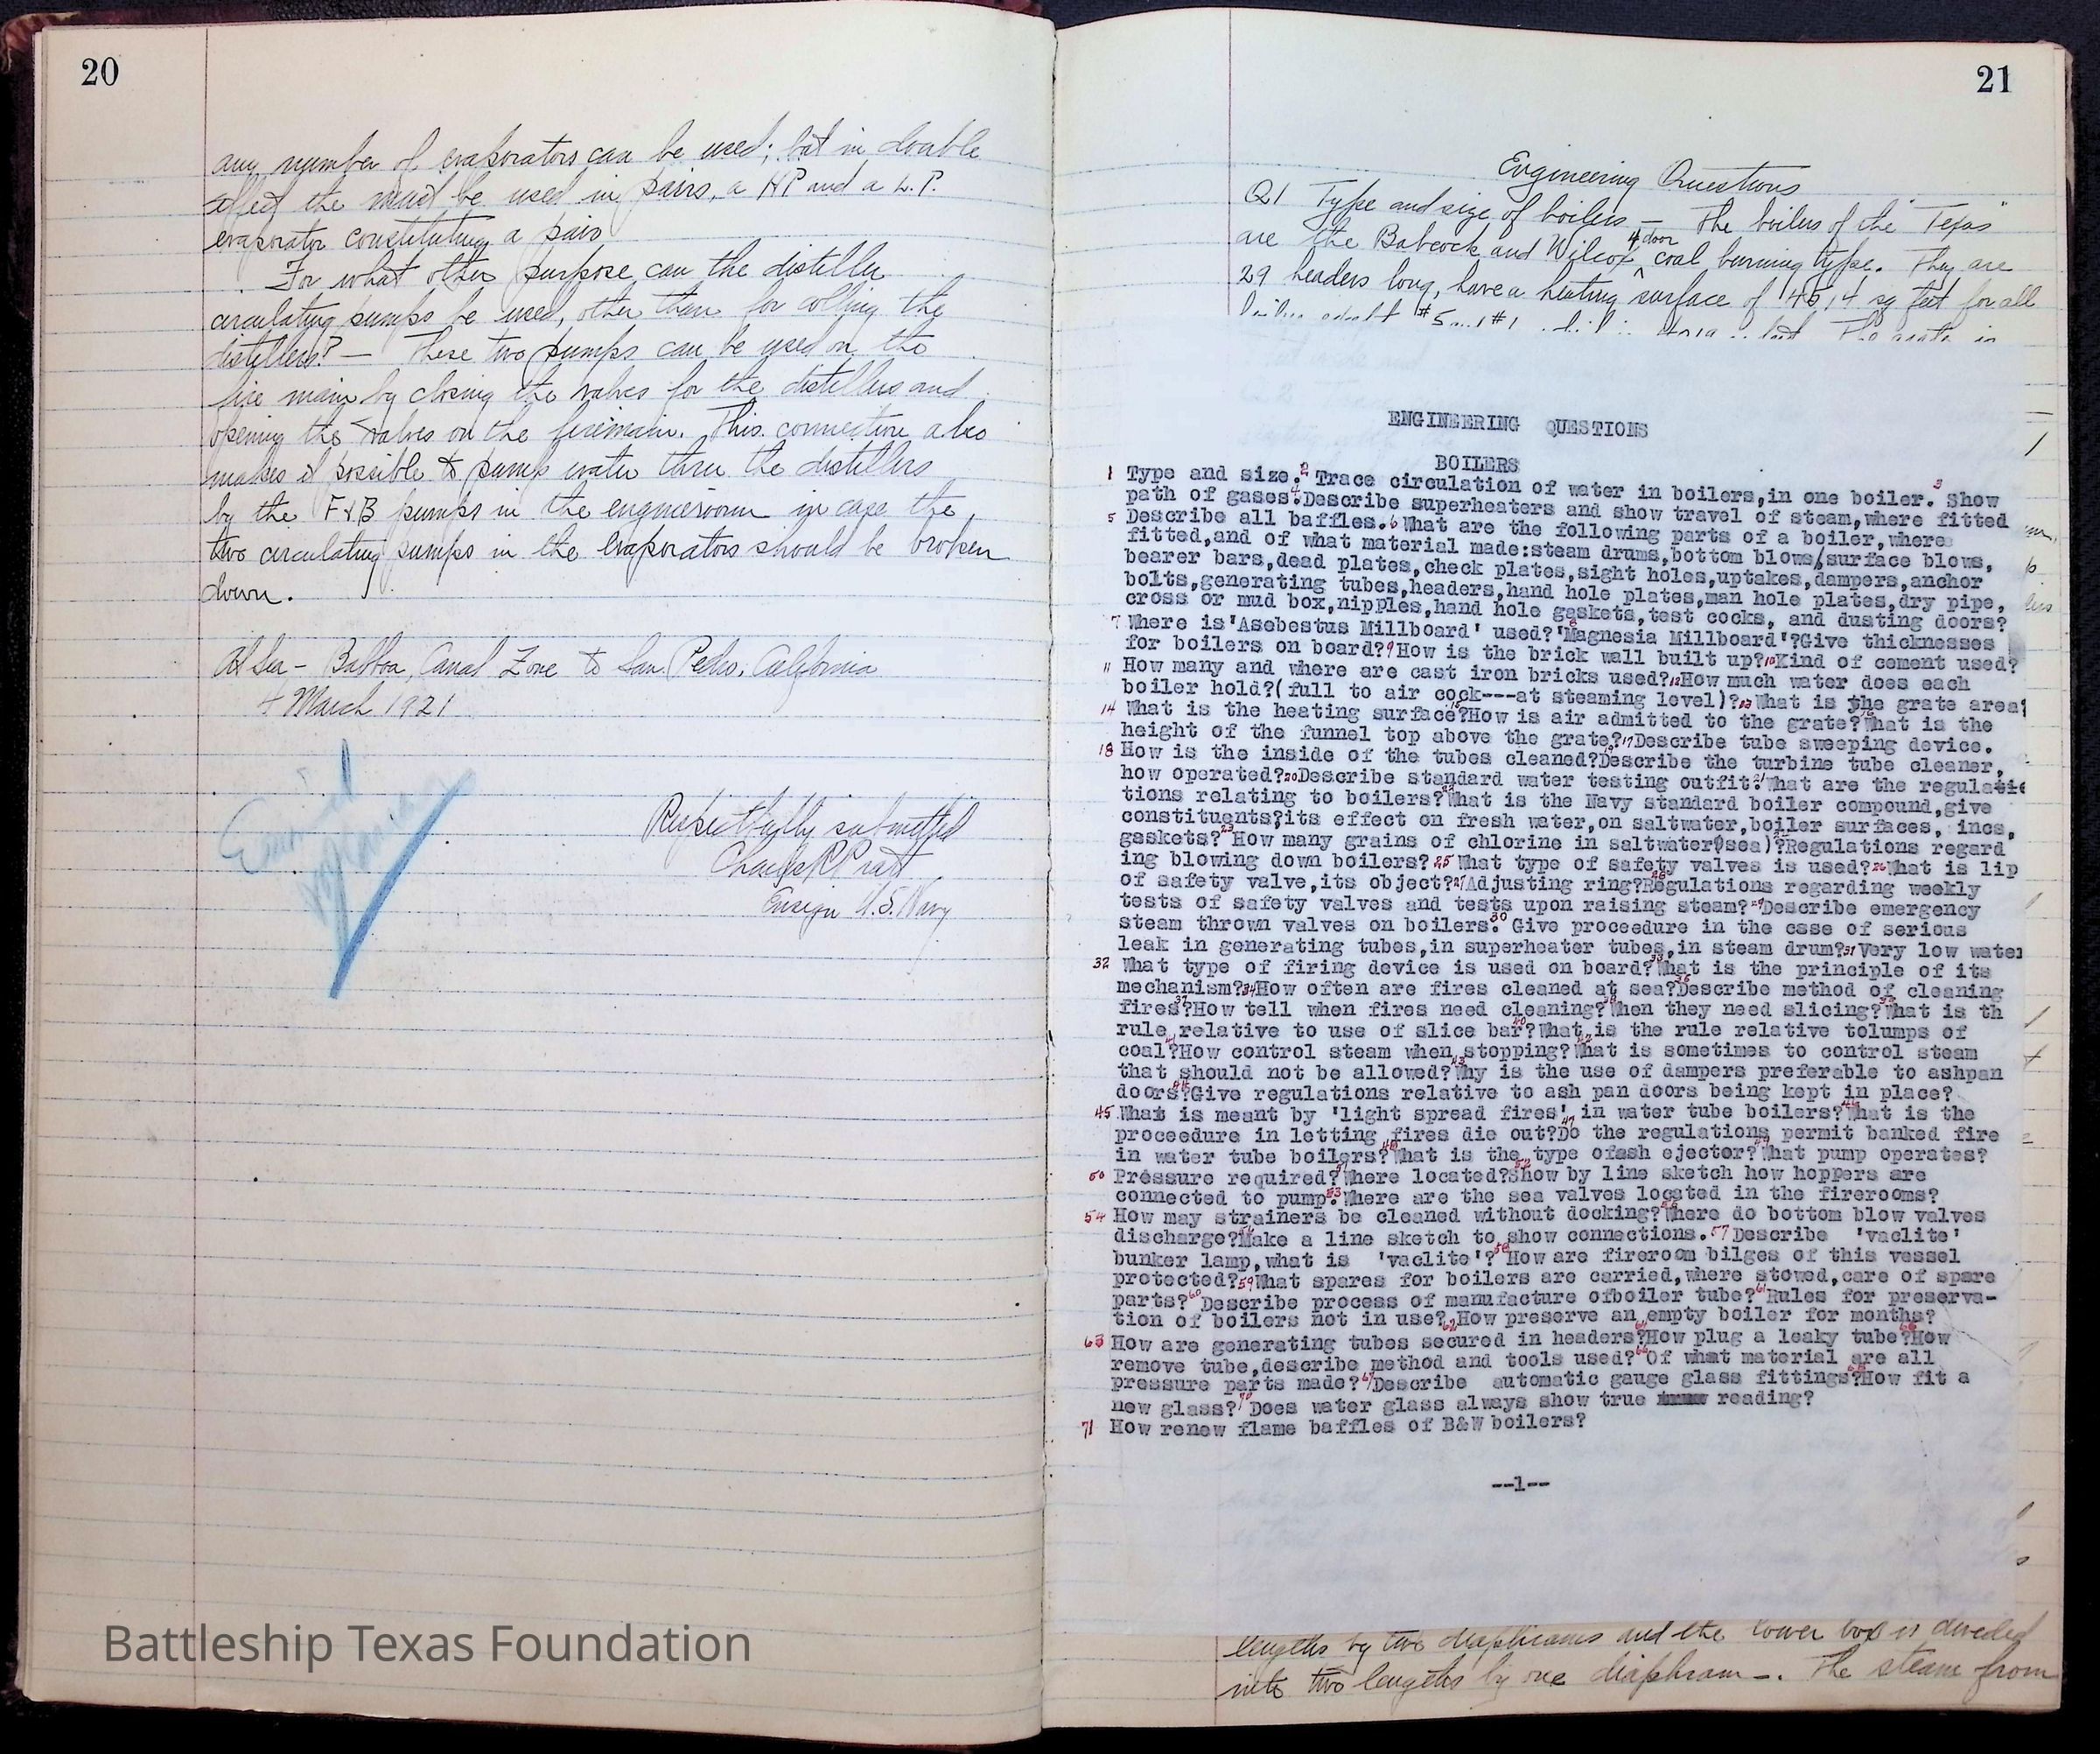 20
any number of evaporators can be used; but in double
effect the must be used in pairs, a HP and a L.P.
evaporator constituting a pair
For what other purpose can the distiller
circulating pumps be used, other than for colling the
distillers? — These two pumps can be used on the
fire main by closing the valves for the distillers and
opening the valves on the firemain. This connection also
makes it possible to pump water thru the distillers
by the F&B pumps in the engineroom in case the
two circulating pumps in the evaporators should be broken
down.
At Sea - Balboa, Canal Zone to San Pedro, California
4 March 1921
Respectfully submitted
Charles R Pratt
Ensign U.S. Navy
Battleship Texas Foundation
21
Engineering Questions
Q1 Type and size of boilers — The boilers of the "Texas"
are the Babcock and Wilcox 4 door coal burning type. They are
29 headers long, have a heating surface of 4614 sq feet for all
ENGINEERING QUESTIONS
BOILERS
1 Type and size.2 Trace circulation of water in boilers,in one boiler.3 Show
path of gases.4Describe superheaters and show travel of steam,where fitted
5 Describe all baffles.6What are the following parts of a boiler,where
fitted,and of what material made:steam drums,bottom blows/surface blows,
bearer bars,dead plates,check plates,sight holes,uptakes,dampers,anchor
bolts,generating tubes,headers,hand hole plates,man hole plates,dry pipe,
cross or mud box,nipples,hand hole gaskets,test cocks, and dusting doors?
7 Where is'Asebestus Millboard' used?8'Magnesia Millboard'?Give thicknesses
for boilers on board?9How is the brick wall built up?10Kind of cement used?
11 How many and where are cast iron bricks used?12How much water does each
boiler hold?(full to air cock---at steaming level)?13What is the grate area?
14 What is the heating surface?15How is air admitted to the grate?16What is the
height of the funnel top above the grate?17Describe tube sweeping device.
18 How is the inside of the tubes cleaned?19Describe the turbine tube cleaner,
how operated?20Describe standard water testing outfit?21What are the regulatio
tions relating to boilers?22What is the Navy standard boiler compound,give
constituents?its effect on fresh water,on saltwater,boiler surfaces, incs,
gaskets?23 How many grains of chlorine in saltwater(sea)?24Regulations regard
ing blowing down boilers?25What type of safety valves is used?26What is lip
of safety valve,its object?27Adjusting ring?28Regulations regarding weekly
tests of safety valves and tests upon raising steam?29Describe emergency
steam thrown valves on boilers.30 Give proceedure in the case of serious
leak in generating tubes,in superheater tubes,in steam drum?31Very low water
32 What type of firing device is used on board?33What is the principle of its
mechanism?34How often are fires cleaned at sea?35Describe method of cleaning
fires?37How tell when fires need cleaning?38When they need slicing?39What is th
rule relative to use of slice bar?40What is the rule relative tolumps of
coal?41How control steam when stopping?42What is sometimes to control steam
that should not be allowed?43Why is the use of dampers preferable to ashpan
doors?44Give regulations relative to ash pan doors being kept in place?
45 What is meant by 'light spread fires' in water tube boilers?46What is the
proceedure in letting fires die out?47Do the regulations permit banked fire
in water tube boilers?48What is the type ofash ejector?49What pump operates?
50 Pressure required?51Where located?52Show by line sketch how hoppers are
connected to pump?53Where are the sea valves located in the firerooms?
54 How may strainers be cleaned without docking?55Where do bottom blow valves
discharge?56Make a line sketch to show connections.57Describe 'vaclite'
bunker lamp,what is 'vaclite'?58How are fireroom bilges of this vessel
protected?59What spares for boilers are carried,where stowed,care of spare
parts?60Describe process of manufacture ofboiler tube?61Rules for preserva-
tion of boilers not in use?62How preserve an empty boiler for months?
63 How are generating tubes secured in headers?64How plug a leaky tube?65How
remove tube,describe method and tools used?66Of what material are all
pressure parts made?67Describe automatic gauge glass fittings?68How fit a
new glass?70Does water glass always show true reading?
71 How renew flame baffles of B&W boilers?
--1--
lengths by two diaphrams and the lower box is divided
into two lengths by one diaphram -. The steam from